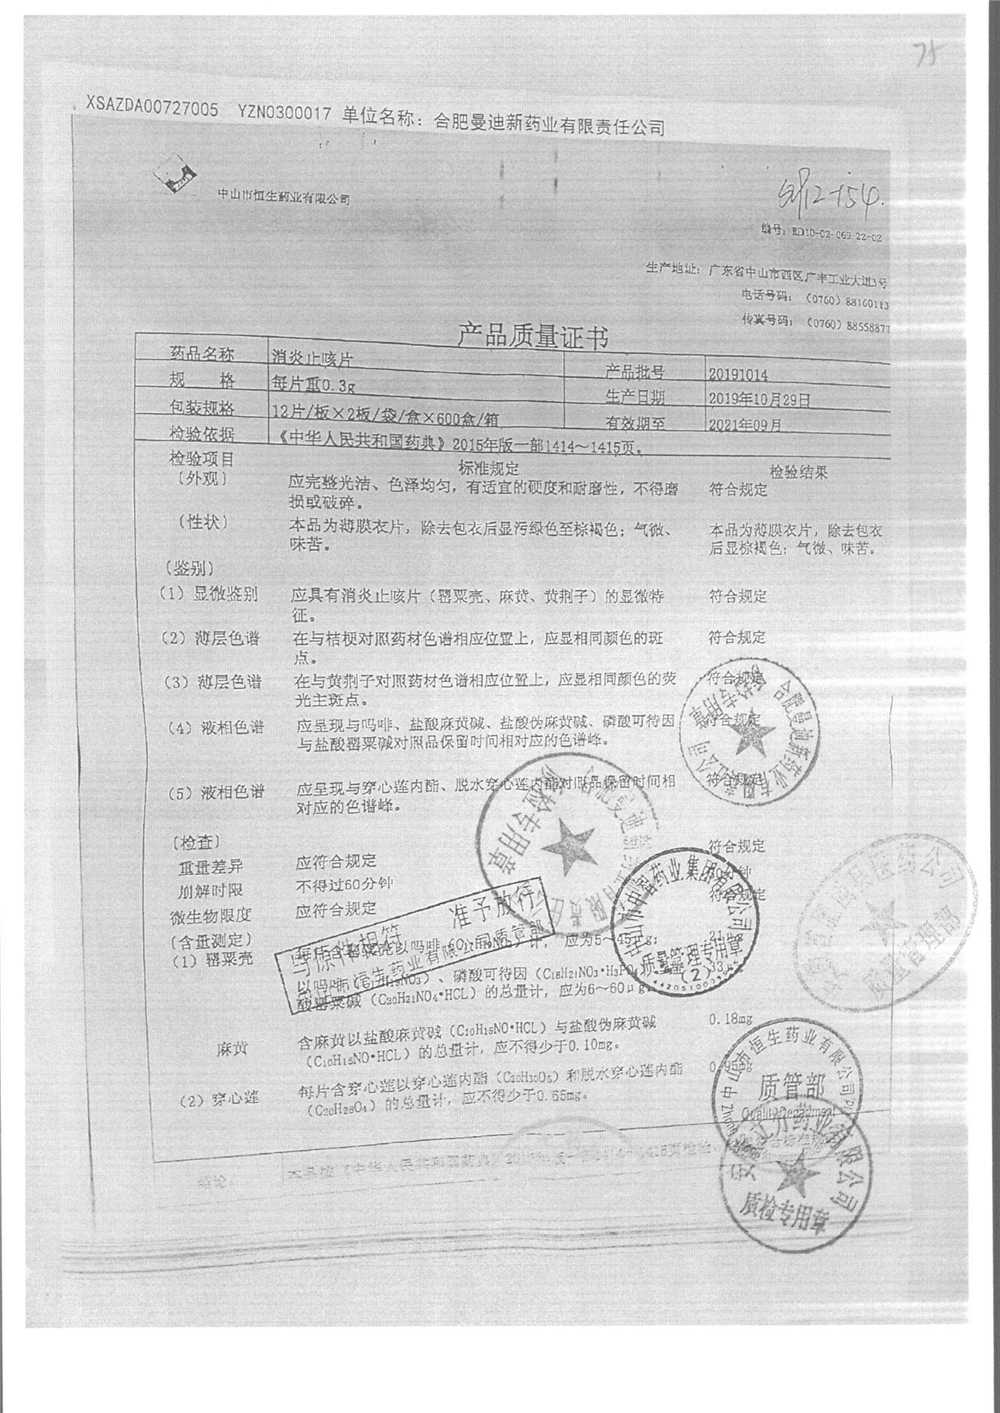 75
XSAZDA00727005 YZN0300017 单位名称：合肥曼迪新药业有限责任公司
中山市恒生药业有限公司
编号：
生产地址：广东省中山市西区广丰工业大道3号
电话号码：（0760）88160113
传真号码：（0760）8855887
产品质量证书
药品名称 消炎止咳片 产品批号 20191014
规 格 每片重0.3g 生产日期 2019年10月29日
包装规格 12片/板×2板/袋/盒×600盒/箱 有效期至 2021年09月
检验依据 《中华人民共和国药典》2015年版一部1414～1415页。
检验项目 标准规定 检验结果
〔外观〕 应完整光洁、色泽均匀，有适宜的硬度和耐磨性，不得磨 符合规定
损或破碎。
〔性状〕 本品为薄膜衣片，除去包衣后显污绿色至棕褐色；气微、 本品为薄膜衣片，除去包衣
味苦。 后显棕褐色；气微、味苦。
〔鉴别〕
（1）显微鉴别 应具有消炎止咳片（罂粟壳、麻黄、黄荆子）的显微特 符合规定
征。
（2）薄层色谱 在与桔梗对照药材色谱相应位置上，应显相同颜色的斑 符合规定
点。
（3）薄层色谱 在与黄荆子对照药材色谱相应位置上，应显相同颜色的荧 符合规定
光主斑点。
（4）液相色谱 应呈现与吗啡、盐酸麻黄碱、盐酸伪麻黄碱、磷酸可待因 符合规定
与盐酸罂粟碱对照品保留时间相对应的色谱峰。
（5）液相色谱 应呈现与穿心莲内酯、脱水穿心莲内酯对照品保留时间相 符合规定
对应的色谱峰。
〔检查〕 符合规定
重量差异 应符合规定
崩解时限 不得过60分钟 分钟
微生物限度 应符合规定 符合规定
〔含量测定〕
（1）罂粟壳 罂粟壳以吗啡 计，应为5～45μg； 21μg
以吗啡 、磷酸可待因（C₁₈H₂₁NO₃·H₃PO₄ 33μ
酸罂粟碱（C₂₀H₂₁NO₄·HCL）的总量计，应为6～60μg。
麻黄 含麻黄以盐酸麻黄碱（C₁₀H₁₅NO·HCL）与盐酸伪麻黄碱 0.18mg
（C₁₀H₁₅NO·HCL）的总量计，应不得少于0.10mg。
（2）穿心莲 每片含穿心莲以穿心莲内酯（C₂₀H₃₀O₅）和脱水穿心莲内酯
（C₂₀H₂₈O₄）的总量计，应不得少于0.65mg。
结论： 本品按《中华人民共和国药典》
合肥曼迪新药业有限责任公司
质检专用章
与原件相符 准予放行
恒生药业有限公司质管部
中山市中智药业集团有限公司
质量管理专用章
（2）
医药公司
质量管理部
中山市恒生药业有限公司
质管部
药业有限公司
质检专用章